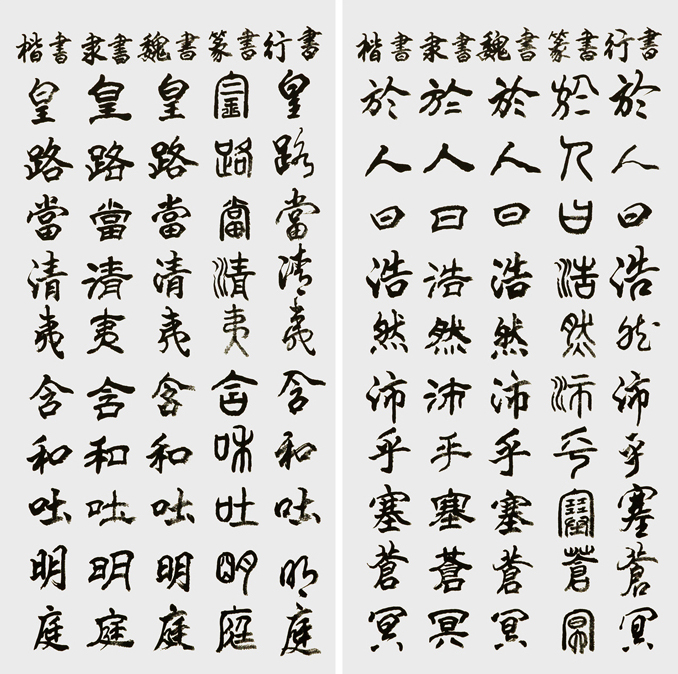 行書於人曰浩然沛乎塞蒼冥
篆書於人曰浩然沛乎塞蒼冥
魏書於人曰浩然沛乎塞蒼冥
隶書於人曰浩然沛乎塞蒼冥
楷書於人曰浩然沛乎塞蒼冥
行書皇路當清夷含和吐明庭
篆書皇路當清夷含和吐明庭
魏書皇路當清夷含和吐明庭
隶書皇路當清夷含和吐明庭
楷書皇路當清夷含和吐明庭